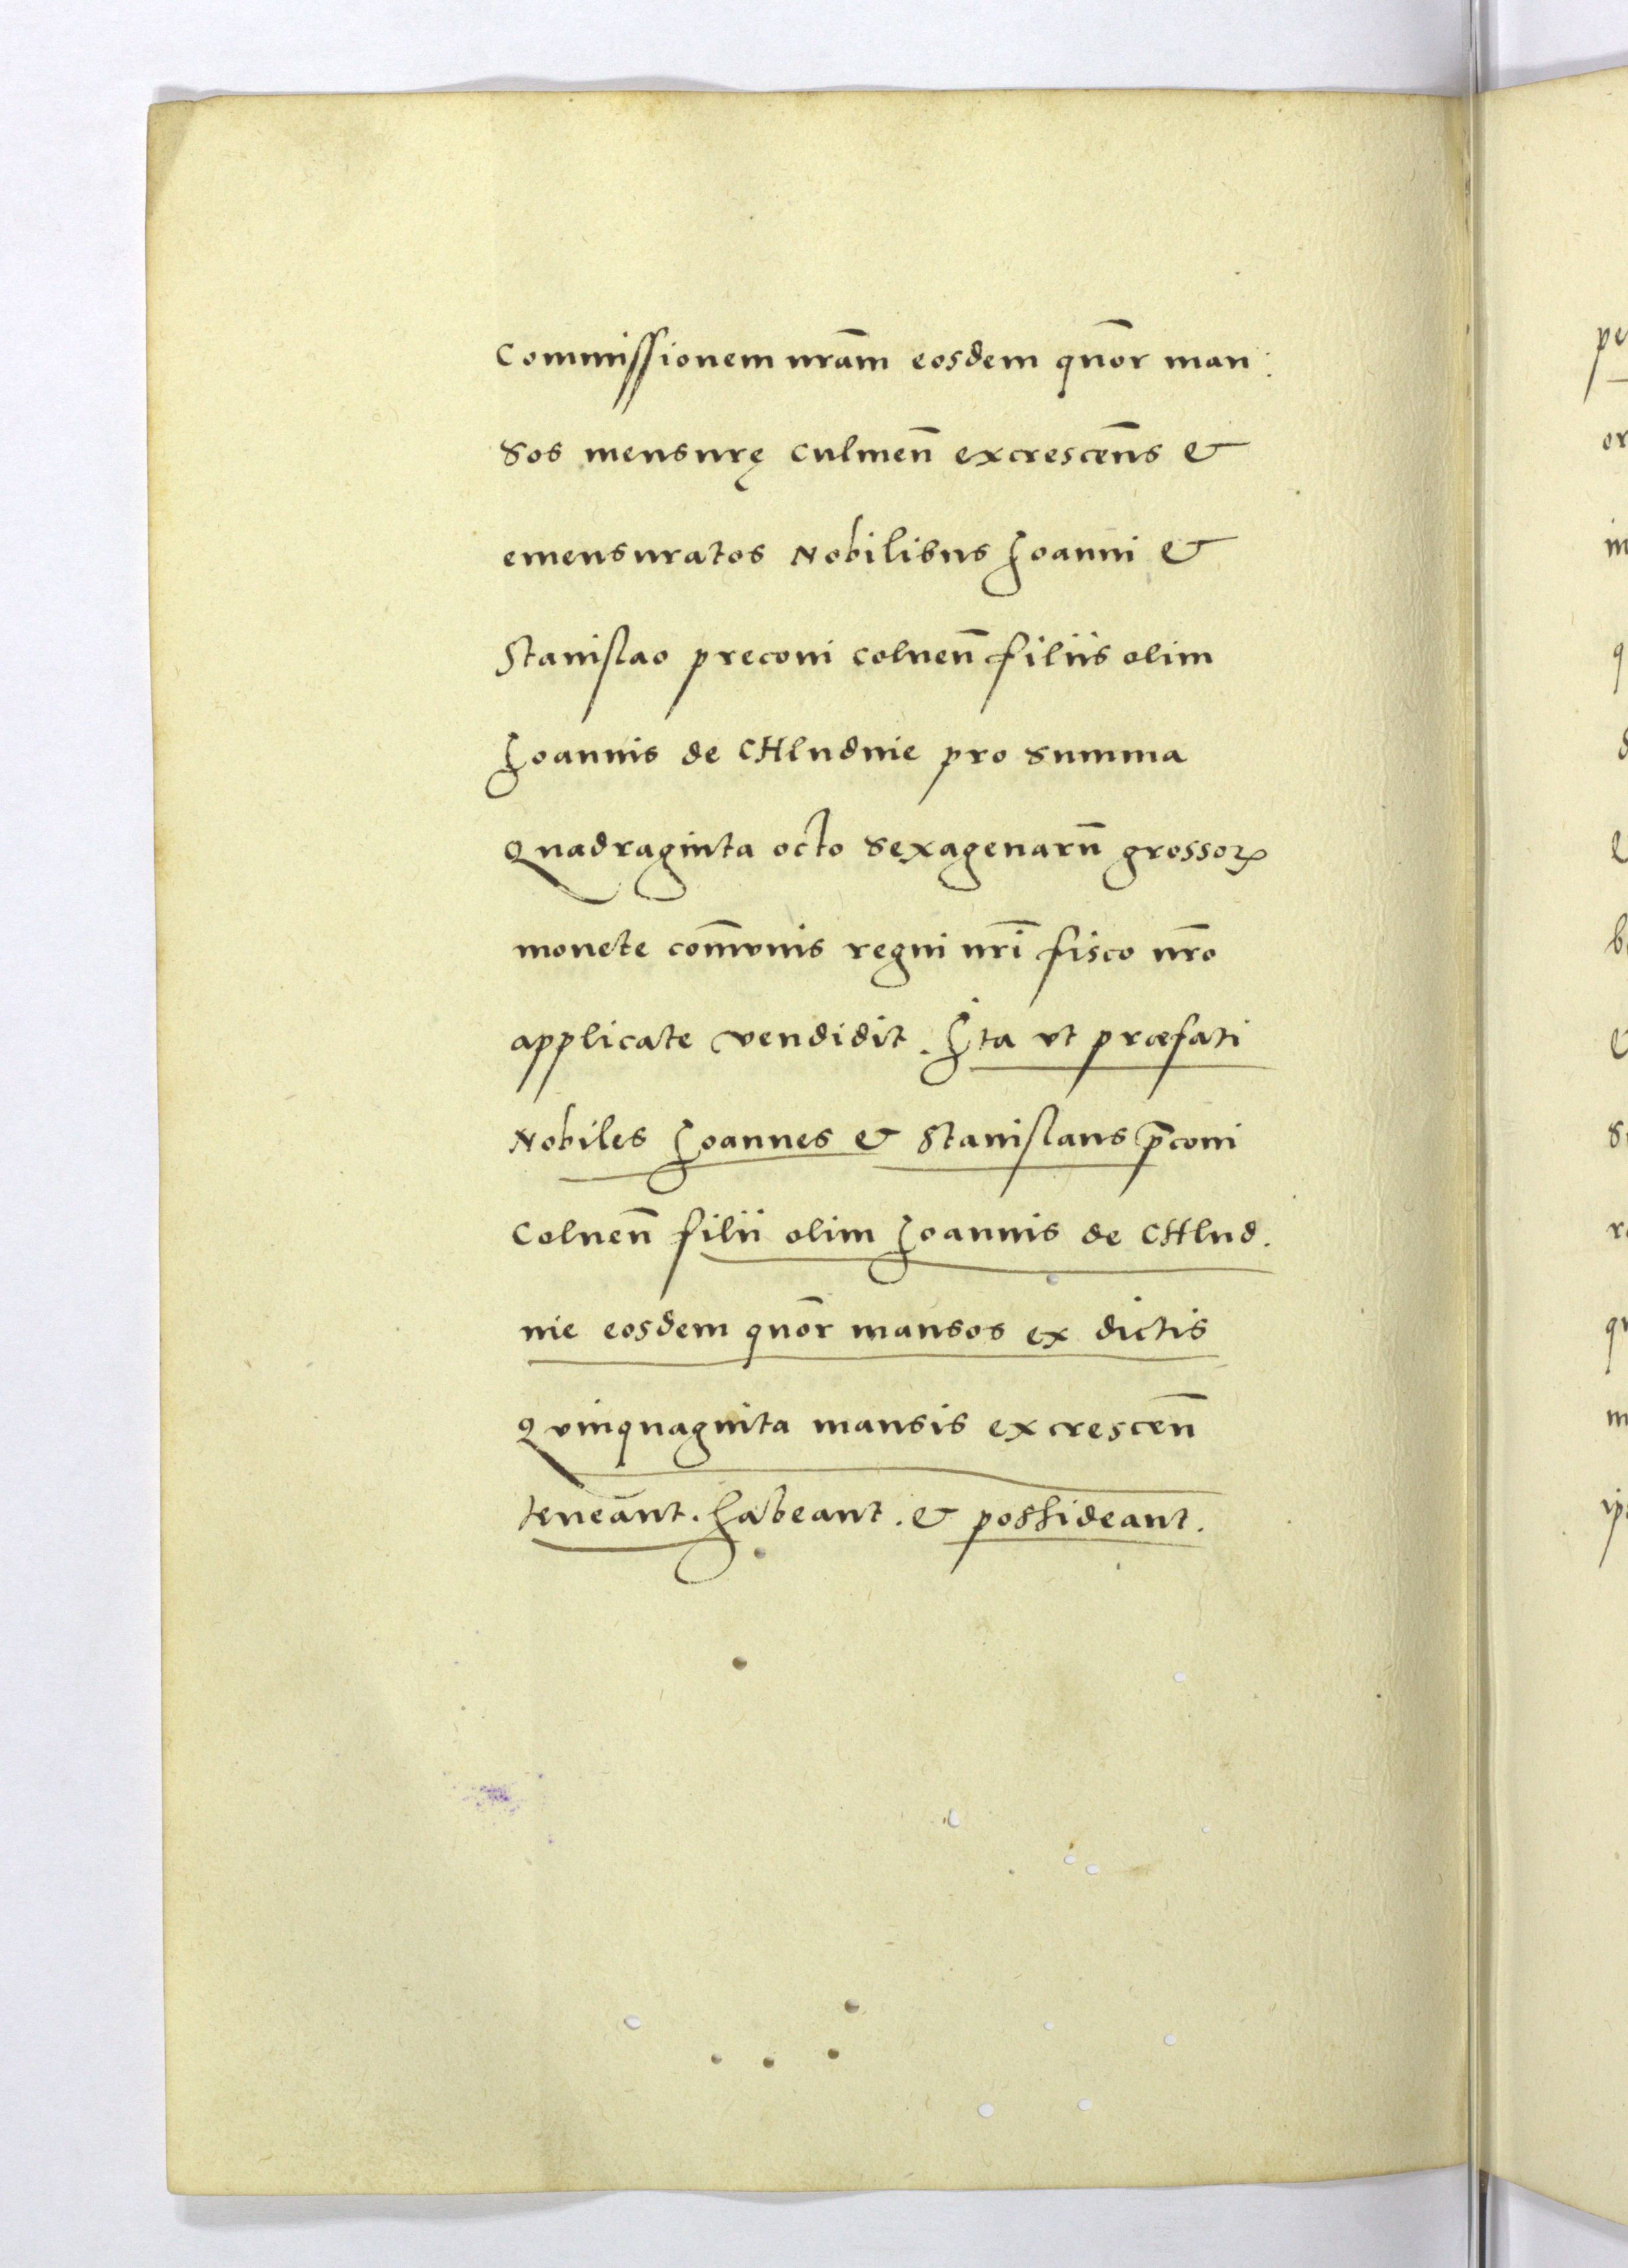 Commissionem nr̄am eosdem quōr man:
sos mensurę Culmen̄ excrescen̄s &
emensuratos Nobilibus Joanni &
Stanislao preconi colnen̄ filiis olim
Joannis de CHludnie pro summa
Quadraginta octo sexagenarū grossoꝝ
monete com̄unis regni nr̄i fisco nr̄o
applicate vendidit. Ita vt præfati
Nobiles Joannes & Stanislaus p̄coni
Colnen̄ filii olim Joannis de CHlud.
nie eosdem quōr mansos ex dictis
Quinquaginta mansis excrescen̄
teneant. habeant. & possideant.